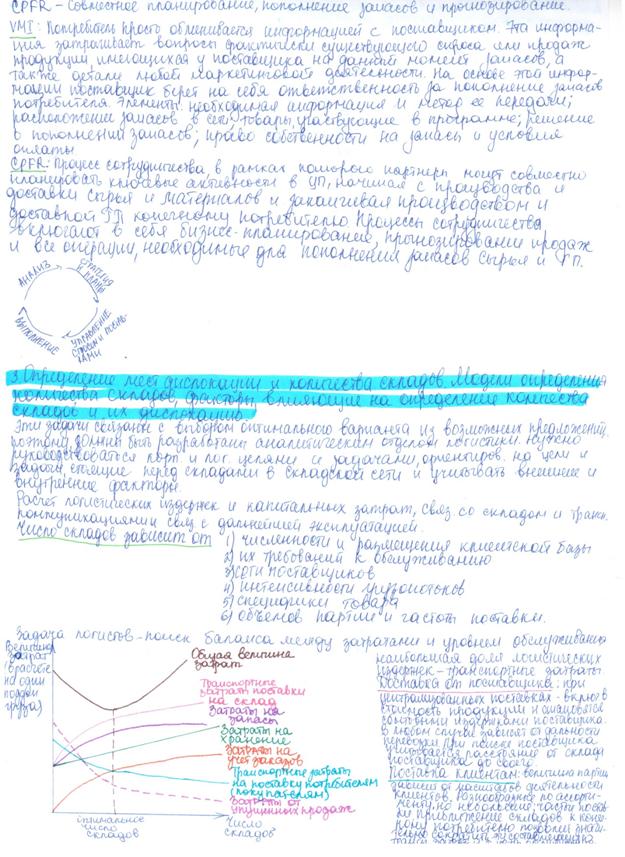 CPFR - Совместное планирование, пополнение запасов и прогнозирование.
VMI: Потребитель просто обменивается информацией с поставщиком. Эта информа-
ция затрагивает вопросы фактически существующего спроса или продаж
продукции, имеющихся у поставщика на данный момент запасов, а
также детали любой маркетинговой деятельности. На основе этой инфор-
мации поставщик берет на себя ответственность за пополнение запасов
потребителя. Элементы: необходимая информация и метод ее передачи;
расположение запасов в сети; товары, участвующие в программе; решение
о пополнении запасов; право собственности на запасы и условия
оплаты
CPFR: Процесс сотрудничества, в рамках которого партнеры могут совместно
планировать ключевые активности в УП, начиная с производства и
доставки сырья и материалов и заканчивая производством и
доставкой ГП конечному потребителю Процессы сотрудничества
включают в себя бизнес-планирование, прогнозирование продаж
и все операции, необходимые для пополнения запасов сырья и ГП.
АНАЛИЗ
СТРАТЕГИЯ
И ПЛАНЫ
УПРАВЛЕНИЕ
СПРОСОМ И ПОСТАВ-
КАМИ
ВЫПОЛНЕНИЕ
3. Определение мест дислокации и количества складов. Модели определения
количества складов, факторы, влияющие на определение количества
складов и их дислокацию.
Эти задачи связаны с выбором оптимального варианта из возможных предложений,
поэтому должны быть разработаны аналитическим отделом логистики. Нужно
руководствоваться корп. и лог. целями и задачами, ориентиров. на цели и
задачи, стоящие перед складами в складской сети и учитывать внешние и
внутренние факторы.
Расчет логистических издержек и капитальных затрат, связ со складом и трансп.
коммуникациями связ с дальнейшей эксплуатацией.
Число складов зависит от
1) численности и размещения клиентской базы
2) их требований к обслуживанию
3) сети поставщиков
4) интенсивности грузопотоков
5) специфики товара
6) объемов партии и частоты поставки.
Задача логистов - поиск баланса между затратами и уровнем обслуживания
Величина
затрат
(в расчете
на один
поддон
груза)
Общая величина
затрат
Транспортные
затраты поставки
на склад
Затраты на
запасы
Затраты на
хранение
Затраты на
учет заказов
Транспортные затраты
на поставку потребителям
(покупателям)
Затраты от
упущенных продаж
оптимальное
число
складов
Число
складов
наибольшая доля логистических
издержек - транспортные затраты.
Доставка от поставщика: при
централизованных поставках - включ в
стоимость продукции и становятся
издержками поставщика.
В любом случае зависят от дальности
перевозки При поиске поставщика
учитывается расстояние от склада
поставщика до своего.
Поставка клиентам: величина партии
зависит от масштабов деятельности
клиентов. Разнообразие по ассорти-
менту, но небольшое; части постав-
ки приближение складов к конеч-
ному потребителю позволяет значи-
тельно сократить